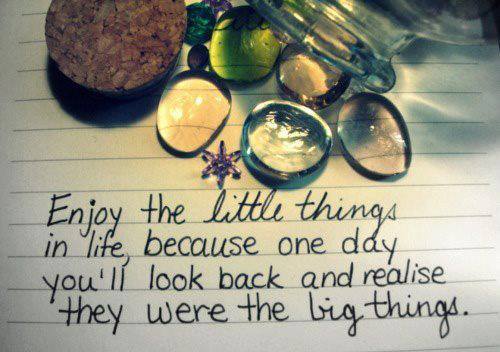 Enjoy the little things
in life, because one day
you'll look back and realise
they were the big things.